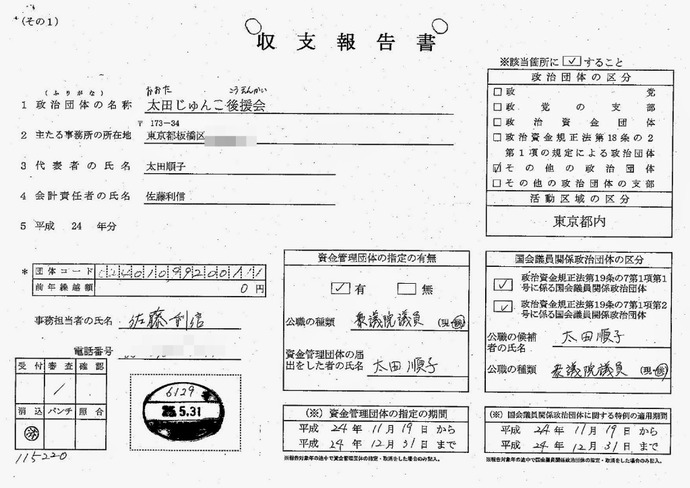 (その1)
収支報告書
※該当箇所に ✓ すること
政治団体の区分
□政党
□政党の支部
□政治資金団体
□政治資金規正法第18条の2
第1項の規定による政治団体
☑その他の政治団体
□その他の政治団体の支部
活動区域の区分
東京都内
(ふりがな) おおた こうえんかい
1 政治団体の名称 太田じゅんこ後援会
〒 173-34
2 主たる事務所の所在地 東京都板橋区
3 代表者の氏名 太田順子
4 会計責任者の氏名 佐藤利信
5 平成 24 年分
* 団体コード
前年繰越額 0 円
事務担当者の氏名 佐藤利信
電話番号
受付 審査 確認
消込 パンチ 照合
済
115220
6129
25.5.31
資金管理団体の指定の有無
☑ 有 □ 無
公職の種類 衆議院議員 (現・候)
資金管理団体の届
出をした者の氏名 太田順子
(※) 資金管理団体の指定の期間
平成 24 年 11 月 19 日 から
平成 24 年 12 月 31 日 まで
※報告対象年の途中で資金管理団体の指定・取消をした場合のみ記入。
国会議員関係政治団体の区分
☑ 政治資金規正法第19条の7第1項第1
号に係る国会議員関係政治団体
☑ 政治資金規正法第19条の7第1項第2
号に係る国会議員関係政治団体
公職の候補
者の氏名 太田順子
公職の種類 衆議院議員 (現・候)
(※) 国会議員関係政治団体に関する特例の適用期間
平成 24 年 11 月 19 日 から
平成 24 年 12 月 31 日 まで